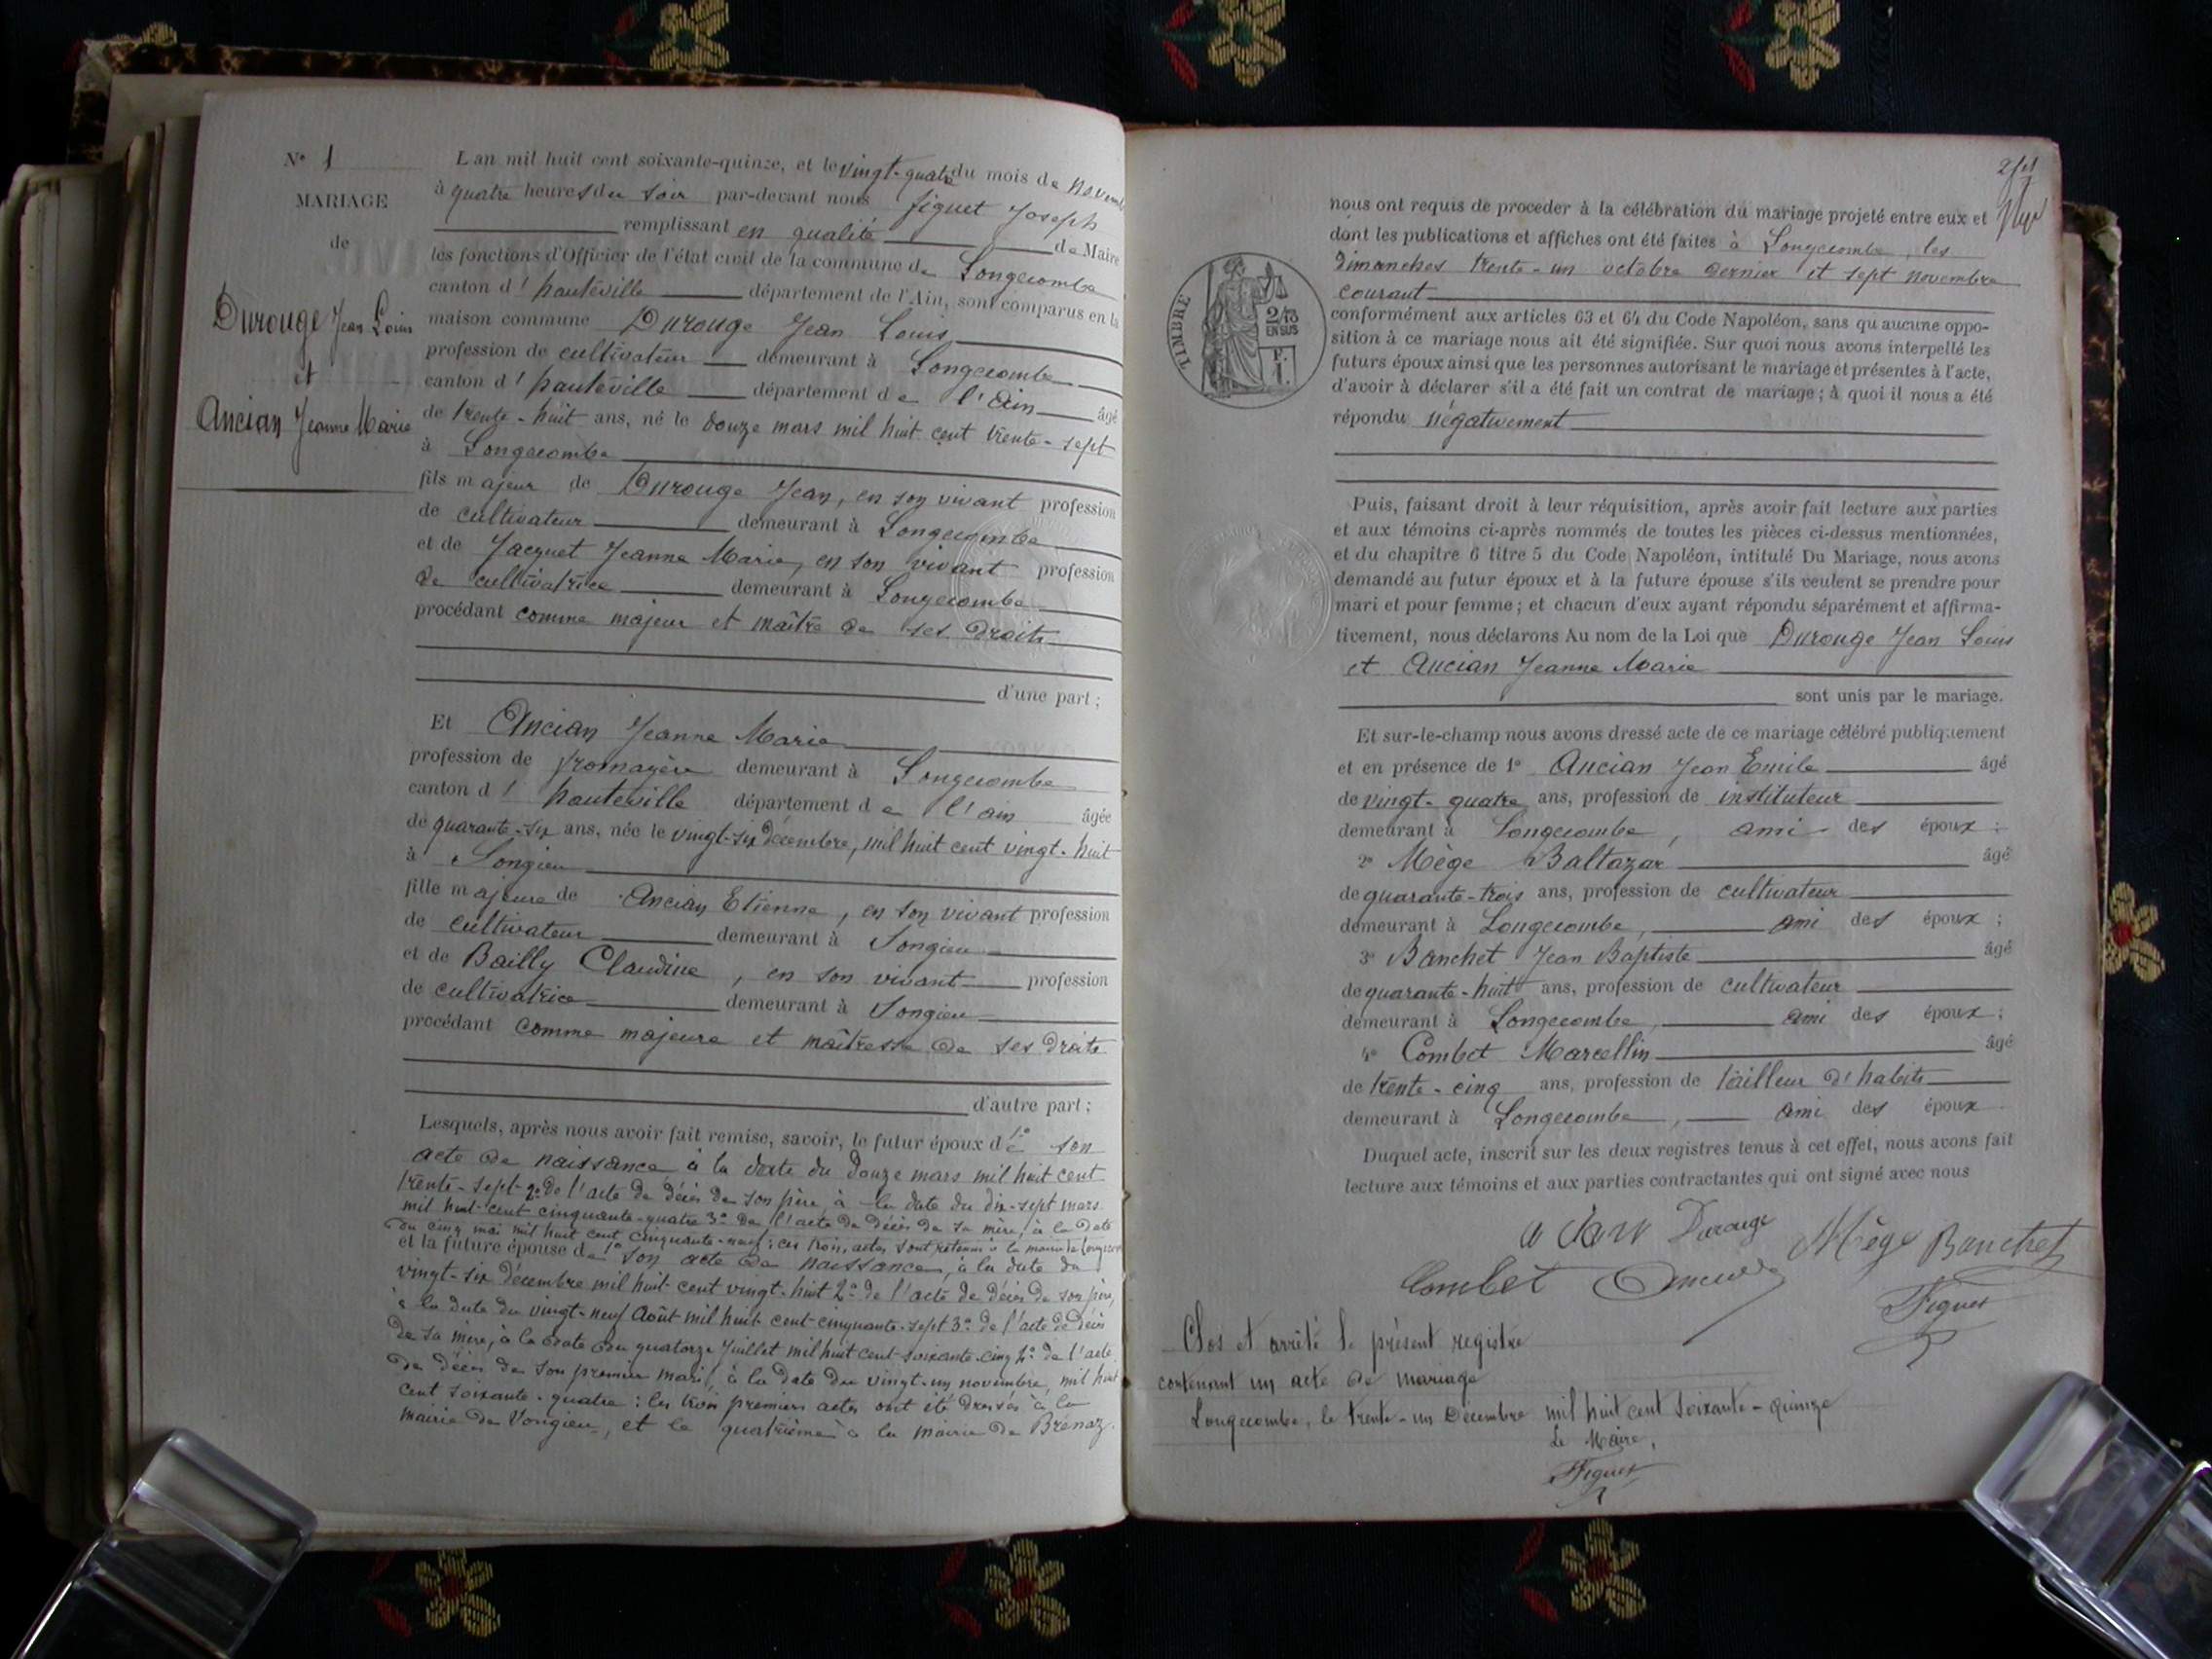 N° 1
MARIAGE
de
Durouge Jean Louis
et
Ancian Jeanne Marie
L'an mil huit cent soixante-quinze, et le vingt-quatre du mois de novembre
à quatre heures du soir par-devant nous Figuet Joseph
remplissant en qualité de Maire
les fonctions d'Officier de l'état civil de la commune de Longecombe
canton d'hauteville département de l'Ain, sont comparus en la
maison commune Durouge Jean Louis
profession de cultivateur demeurant à Longecombe
canton d'hauteville département de l'Ain âgé
de trente-huit ans, né le douze mars mil huit cent trente-sept
à Longecombe
fils majeur de Durouge Jean, en son vivant profession
de cultivateur demeurant à Longecombe
et de Jacquet Jeanne Marie, en son vivant profession
de cultivatrice demeurant à Longecombe
procédant comme majeur et maître de ses droits
d'une part;
Et Ancian Jeanne Marie
profession de fromagère demeurant à Longecombe
canton d'hauteville département de l'ain âgée
de quarante-six ans, née le vingt-six décembre, mil huit cent vingt-huit
à Songieu
fille majeure de Ancian Etienne, en son vivant profession
de cultivateur demeurant à Songieu
et de Bailly Claudine, en son vivant profession
de cultivatrice demeurant à Songieu
procédant comme majeure et maîtresse de ses droits
d'autre part;
Lesquels, après nous avoir fait remise, savoir, le futur époux de 1° son
acte de naissance à la date du douze mars mil huit cent
trente-sept 2° de l'acte de décès de son père, à la date du dix-sept mars
mil huit cent cinquante-quatre 3° de l'acte de décès de sa mère, à la date
du cinq mai mil huit cent cinquante-neuf; ces trois actes sont retenus à la mairie de Longecombe
et la future épouse de 1° son acte de naissance, à la date du
vingt-six décembre mil huit cent vingt-huit 2° de l'acte de décès de son père,
à la date du vingt-neuf Août mil huit cent cinquante-sept 3° de l'acte de décès
de sa mère, à la date du quatorze Juillet mil huit cent soixante-cinq 4° de l'acte
de décès de son premier mari, à la date du vingt-un novembre, mil huit
cent soixante-quatre: les trois premiers actes ont été dressés à la
mairie de Songieu, et le quatrième à la mairie de Brénaz.
nous ont requis de procéder à la célébration du mariage projeté entre eux et
dont les publications et affiches ont été faites à Longecombe, les
dimanches trente-un octobre dernier et sept novembre
courant
TIMBRE
2/10
EN SUS
conformément aux articles 63 et 64 du Code Napoléon, sans qu'aucune oppo-
sition à ce mariage nous ait été signifiée. Sur quoi nous avons interpellé les
futurs époux ainsi que les personnes autorisant le mariage et présentes à l'acte,
d'avoir à déclarer s'il a été fait un contrat de mariage; à quoi il nous a été
répondu négativement
Puis, faisant droit à leur réquisition, après avoir fait lecture aux parties
et aux témoins ci-après nommés de toutes les pièces ci-dessus mentionnées,
et du chapitre 6 titre 5 du Code Napoléon, intitulé Du Mariage, nous avons
demandé au futur époux et à la future épouse s'ils veulent se prendre pour
mari et pour femme; et chacun d'eux ayant répondu séparément et affirma-
tivement, nous déclarons Au nom de la Loi que Durouge Jean Louis
et Ancian Jeanne Marie
sont unis par le mariage.
Et sur-le-champ nous avons dressé acte de ce mariage célébré publiquement
et en présence de 1° Ancian Jean Emile âgé
de vingt-quatre ans, profession de instituteur
demeurant à Longecombe, ami des époux;
2° Mège Baltazar âgé
de quarante-trois ans, profession de cultivateur
demeurant à Longecombe, ami des époux;
3° Banchet Jean Baptiste âgé
de quarante-huit ans, profession de cultivateur
demeurant à Longecombe, ami des époux;
4° Combet Marcellin âgé
de trente-cinq ans, profession de tailleur d'habits
demeurant à Longecombe, ami des époux
Duquel acte, inscrit sur les deux registres tenus à cet effet, nous avons fait
lecture aux témoins et aux parties contractantes qui ont signé avec nous
Durouge Mège Banchet
Combet Figuet
Clos et arrêté le présent registre
contenant un acte de mariage
Longecombe, le trente-un Décembre mil huit cent soixante-quinze
Le Maire,
Figuet